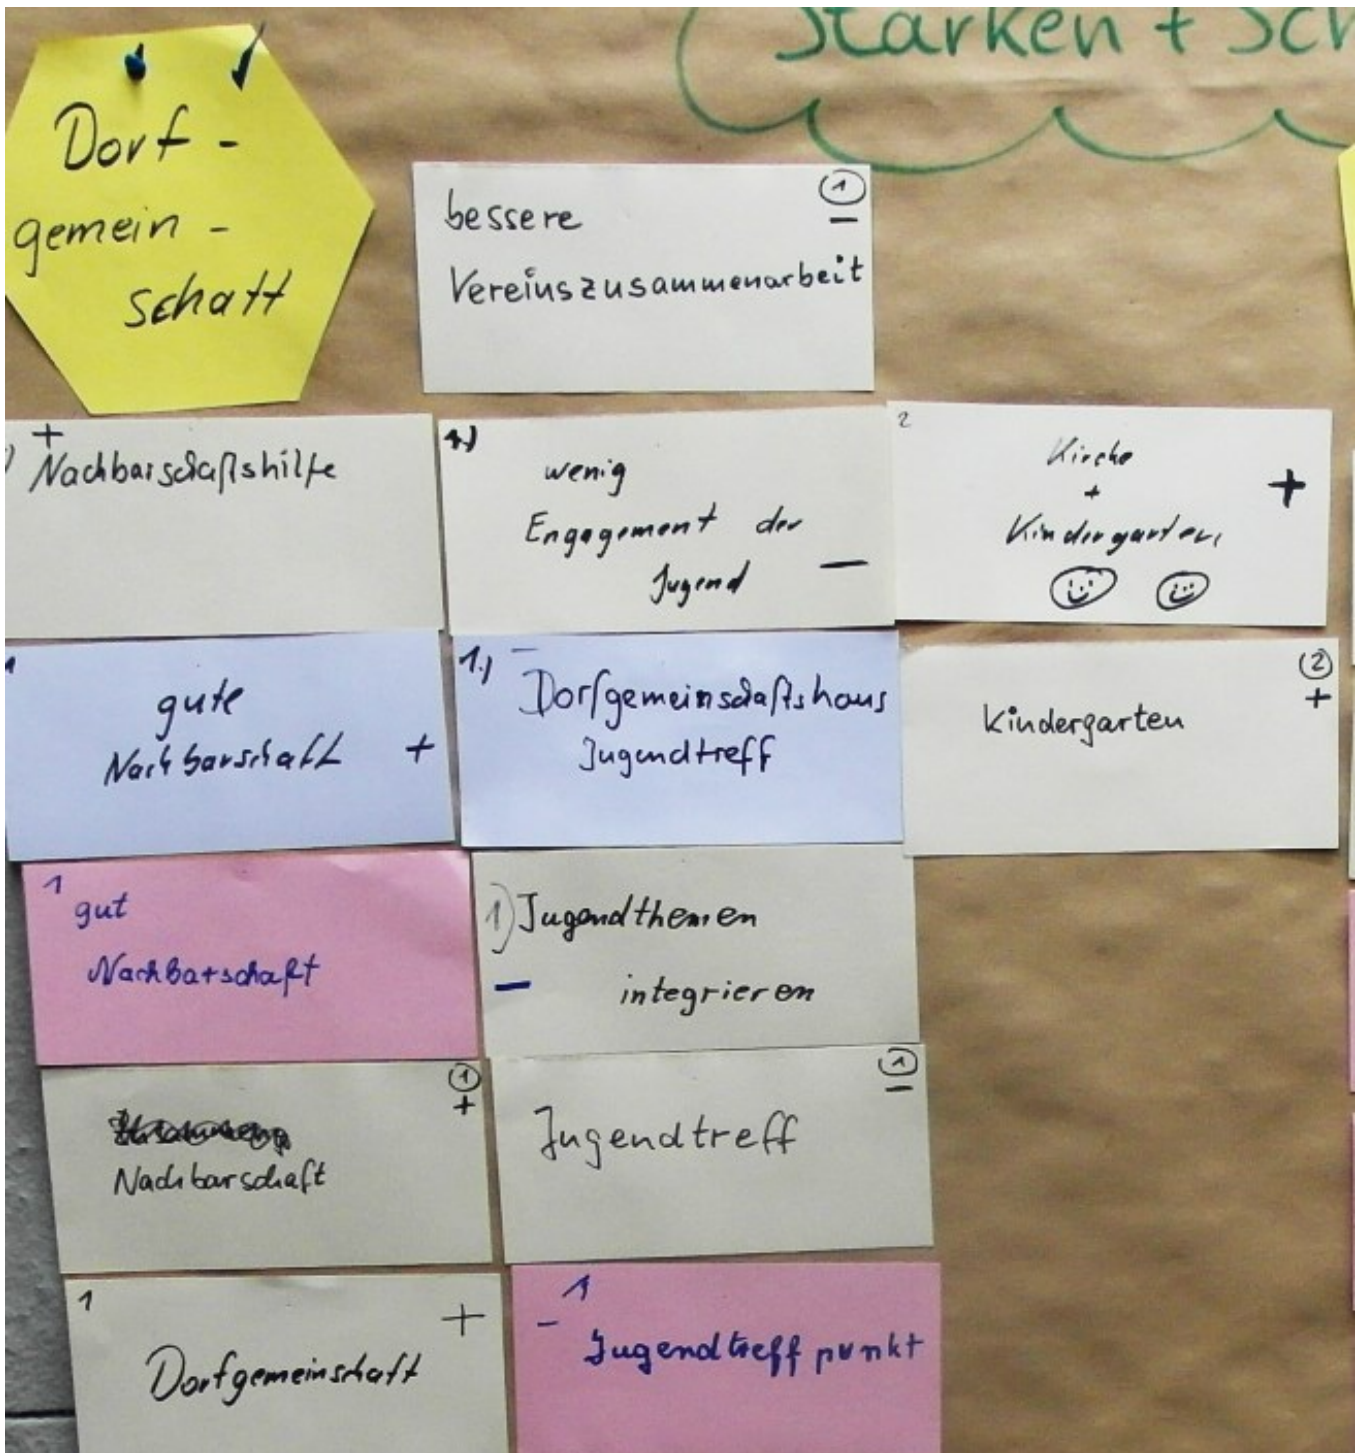 Stärken + Sch
Dorf-
gemein-
schaft
1
-
bessere
Vereinszusammenarbeit
+
Nachbarschaftshilfe
1.)
wenig
Engagement der
Jugend -
2
Kirche
+
Kindergarten
+
1
gute
Nachbarschaft +
1.) -
Dorfgemeinschaftshaus
Jugendtreff
2
+
Kindergarten
1
gut
Nachbarschaft
1) Jugendthemen
- integrieren
1
+
Nachbarschaft
1
-
Jugendtreff
1
+
Dorfgemeinschaft
1
-
Jugendtreffpunkt